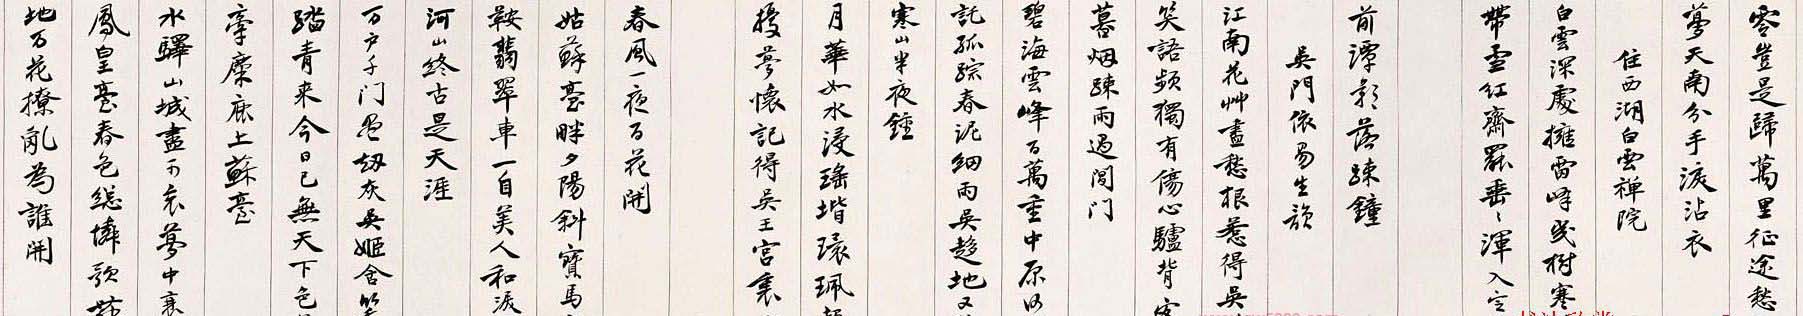 零豈是歸萬里征途愁
夢天南分手淚沾衣
住西湖白雲禅院
白雲深處擁雷峰幾樹寒
帶雪紅齋罷垂〻渾入定
前潭影落疎鐘
吳門依易生韻
江南花艸盡愁根惹得吳
笑語頻獨有傷心驢背客
暮烟疎雨過閶门
碧海雲峰百萬重中原何
託孤踪春泥細雨吳趨地又
寒山半夜鍾
月華如水浸瑤堦環珮
擾夢懷記得吳王宮裏
春風一夜百花開
姑蘇臺畔夕陽斜寶馬
鞍翡翠車一自美人和淚
河山終古是天涯
万户千门盡劫灰吳姬含笑
踏青来今日已無天下色
牽麋鹿上蘇臺
水驛山城盡可哀夢中衰
鳳皇臺春色總憐歌舞
地万花撩亂為誰開